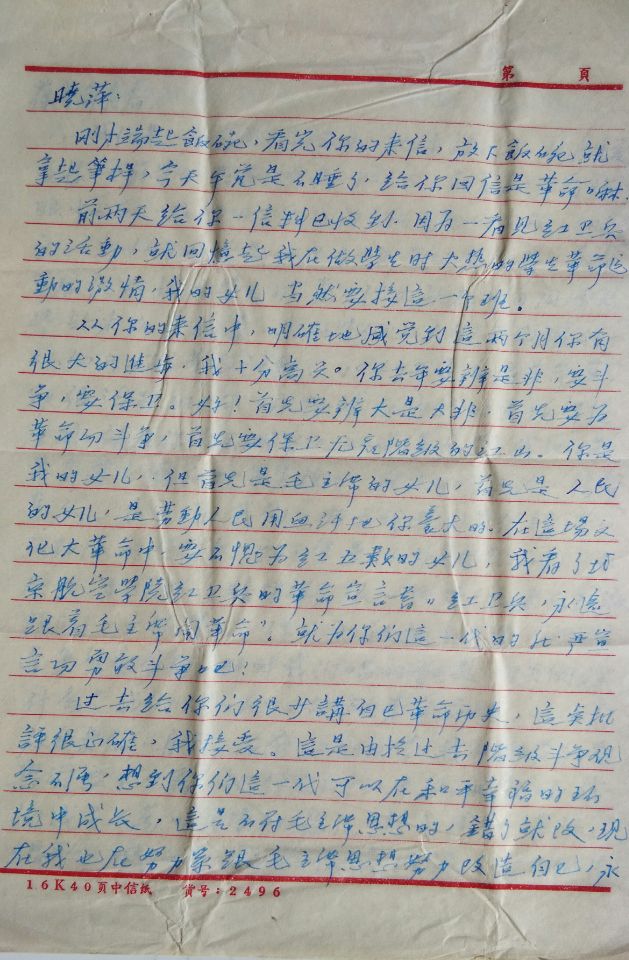 第 頁
晓萍：
刚才端起飯碗，看完你的来信，放下飯碗就
拿起筆桿，今天午觉是不睡了，给你回信是革命嘛
前两天给你一信料已收到。因为一看見红卫兵
的活動，就回憶起我在做學生时火热的學生革命运
動的激情，我的女儿当然要接這一个班。
从你的来信中，明確地感觉到這两个月你有
很大的進步，我十分高兴。你去年要辨是非，要斗
争，要保卫。好！首先要辨大是大非，首先要为
革命而斗争，首先要保卫无産階級的江山。你是
我的女儿，但首先是毛主席的女儿，首先是人民
的女儿，是劳動人民用血汗把你養大的。在這場文
化大革命中，要不愧为红五类的女儿，我看了北
京航空學院红卫兵的革命宣言書"红卫兵，永遠
跟着毛主席闹革命"。就为你們這一代的庄严宣
言而勇敢斗争吧！
过去给你们很少講自己革命历史，這点批
評很正確，我接受。這是由於过去階級斗争观
念不强，想到你们這一代可以在和平幸福的环
境中成长，這是不符毛主席思想的，錯了就改，现
在我也在努力緊跟毛主席思想努力改造自己，永
16K40頁中信紙 貨号：2496